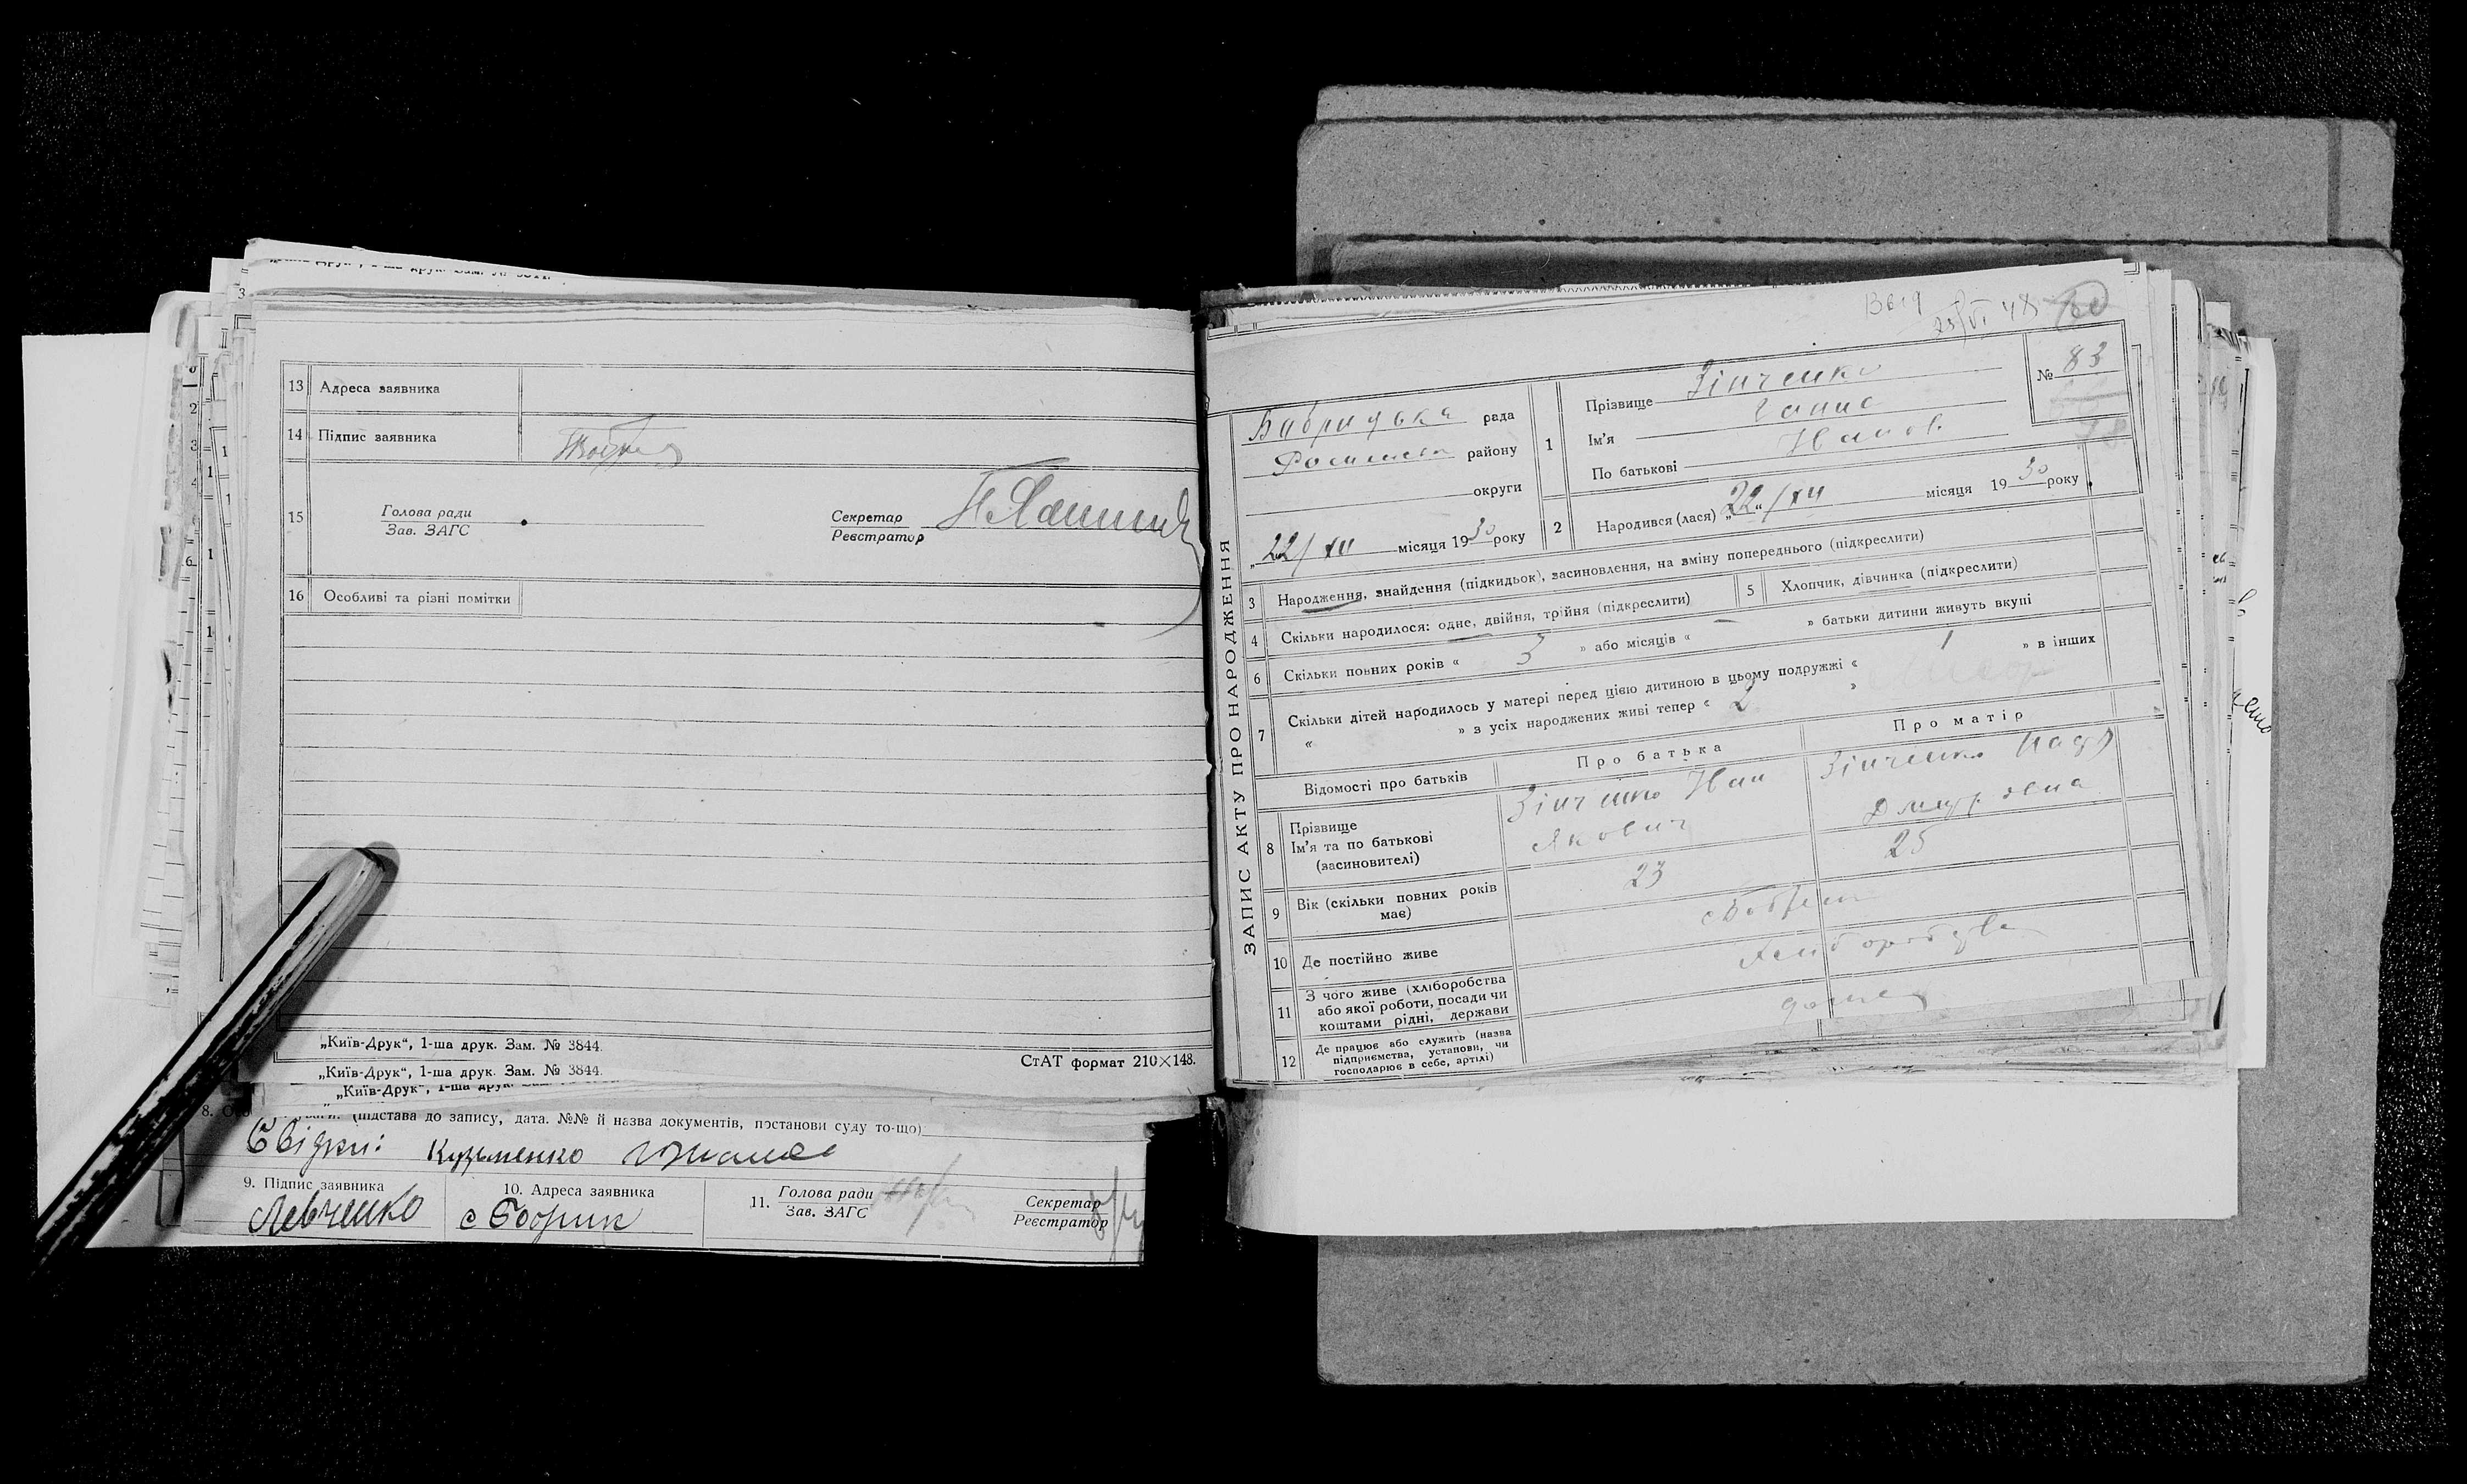 13 Адреса заявника
14 Підпис заявника
15 Голова ради
Зав. ЗАГС
Секретар
Реєстратор
16 Особливі та різні помітки
„Київ-Друк“, 1-ша друк. Зам. № 3844.
СтАТ формат 210×148.
„Київ-Друк“, 1-ша друк. Зам. № 3844.
„Київ-Друк“, 1-ша друк.
(підстава до запису, дата. №№ й назва документів, постанови суду то-що)
Свідки: Кузьменко
9. Підпис заявника
Левченко
10. Адреса заявника
с Бобрик
11. Голова ради
Зав. ЗАГС
Секретар
Реєстратор
ЗАПИС АКТУ ПРО НАРОДЖЕННЯ
25/VI 48
рада
району
округи
22/XII місяця 1930 року
1 Прізвище Зінченко
Ім'я Ганна
По батькові Иванов.
№ 83
2 Народився (лася) „22“/XII місяця 1930 року
3 Народження, знайдення (підкидьок), засиновлення, на зміну попереднього (підкреслити)
4 Скільки народилося: одне, двійня, трійня (підкреслити)
5 Хлопчик, дівчинка (підкреслити)
6 Скільки повних років « 3 » або місяців « — » батьки дитини живуть вкупі
7 Скільки дітей народилось у матері перед цією дитиною в цьому подружжі « 1 » в інших
« » з усіх народжених живі тепер « 2 »
Відомості про батьків
Про батька
Про матір
8 Прізвище
Ім'я та по батькові
(засиновителі)
Зінченко Иван
Якович
Зінченко Надя
Дмитровна
9 Вік (скільки повних років має)
23
25
10 Де постійно живе
с Бобрик
11 З чого живе (хліборобства
або якої роботи, посади чи
коштами рідні, держави
12 Де працює або служить (назва
підприємства, установи, чи
господарює в себе, артілі)